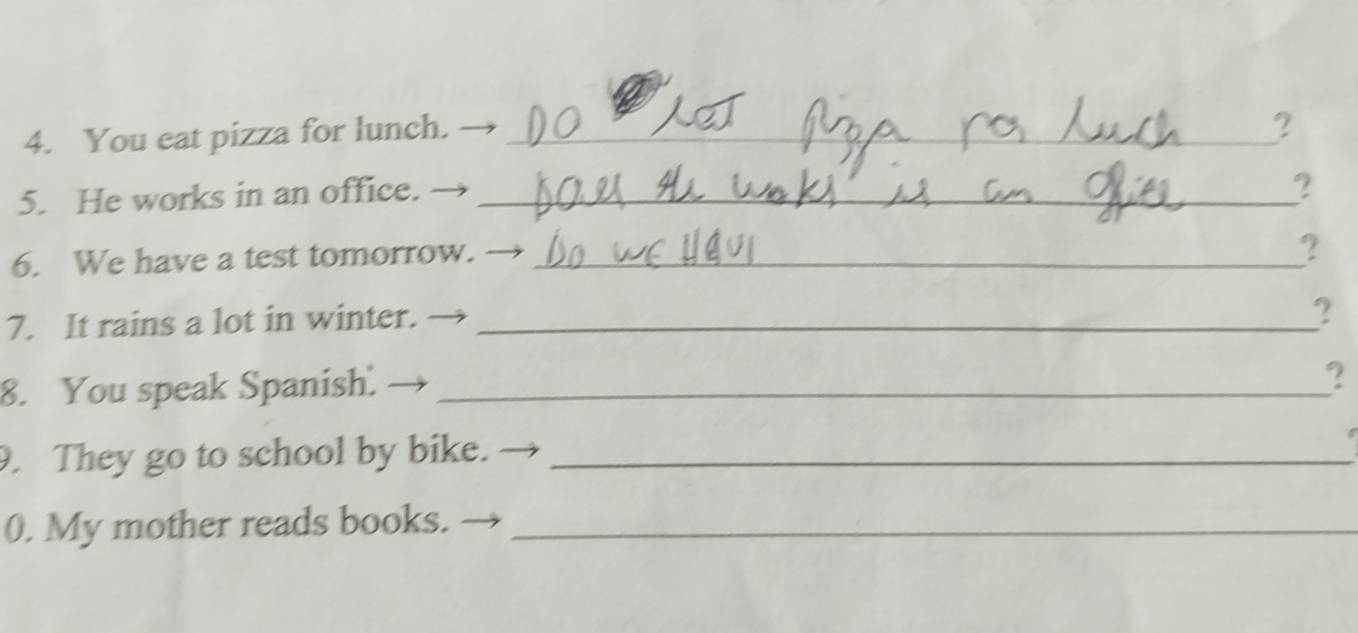 4. You eat pizza for lunch. → DO eat Pizza for Luch ?
5. He works in an office. → Does He works is an office ?
6. We have a test tomorrow. → Do WE HAVE ?
7. It rains a lot in winter. → ?
8. You speak Spanish. → ?
9. They go to school by bike. → ?
0. My mother reads books. →